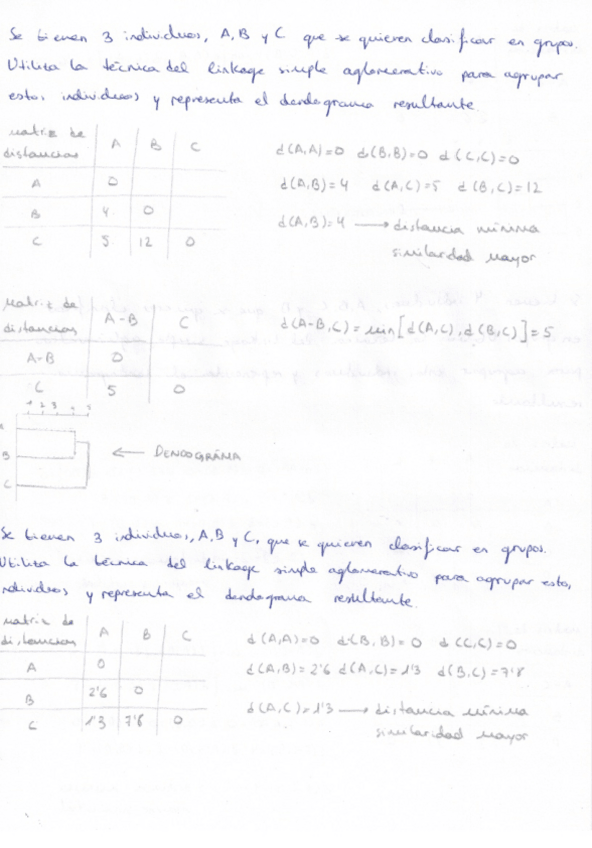 Se tienen 3 individuos, A, B y C que se quieren clasificar en grupos.
Utiliza la técnica del linkage simple aglomerativo para agrupar
estos individuos y representa el dendograma resultante.
Matriz de distancias A B C
A 0
B 4 0
C 5 12 0
d(A,A)=0 d(B,B)=0 d(C,C)=0
d(A,B)=4 d(A,C)=5 d(B,C)=12
d(A,B)=4 → distancia mínima
similaridad mayor
Matriz de distancias A-B C
A-B 0
C 5 0
d(A-B,C)=min[d(A,C),d(B,C)]=5
1 2 3 4 5
B
C
← DENDOGRAMA
Se tienen 3 individuos, A, B y C, que se quieren clasificar en grupos.
Utiliza la técnica del linkage simple aglomerativo para agrupar estos
individuos y representa el dendograma resultante.
Matriz de distancias A B C
A 0
B 2'6 0
C 1'3 7'8 0
d(A,A)=0 d(B,B)=0 d(C,C)=0
d(A,B)=2'6 d(A,C)=1'3 d(B,C)=7'8
d(A,C)=1'3 → distancia mínima
similaridad mayor